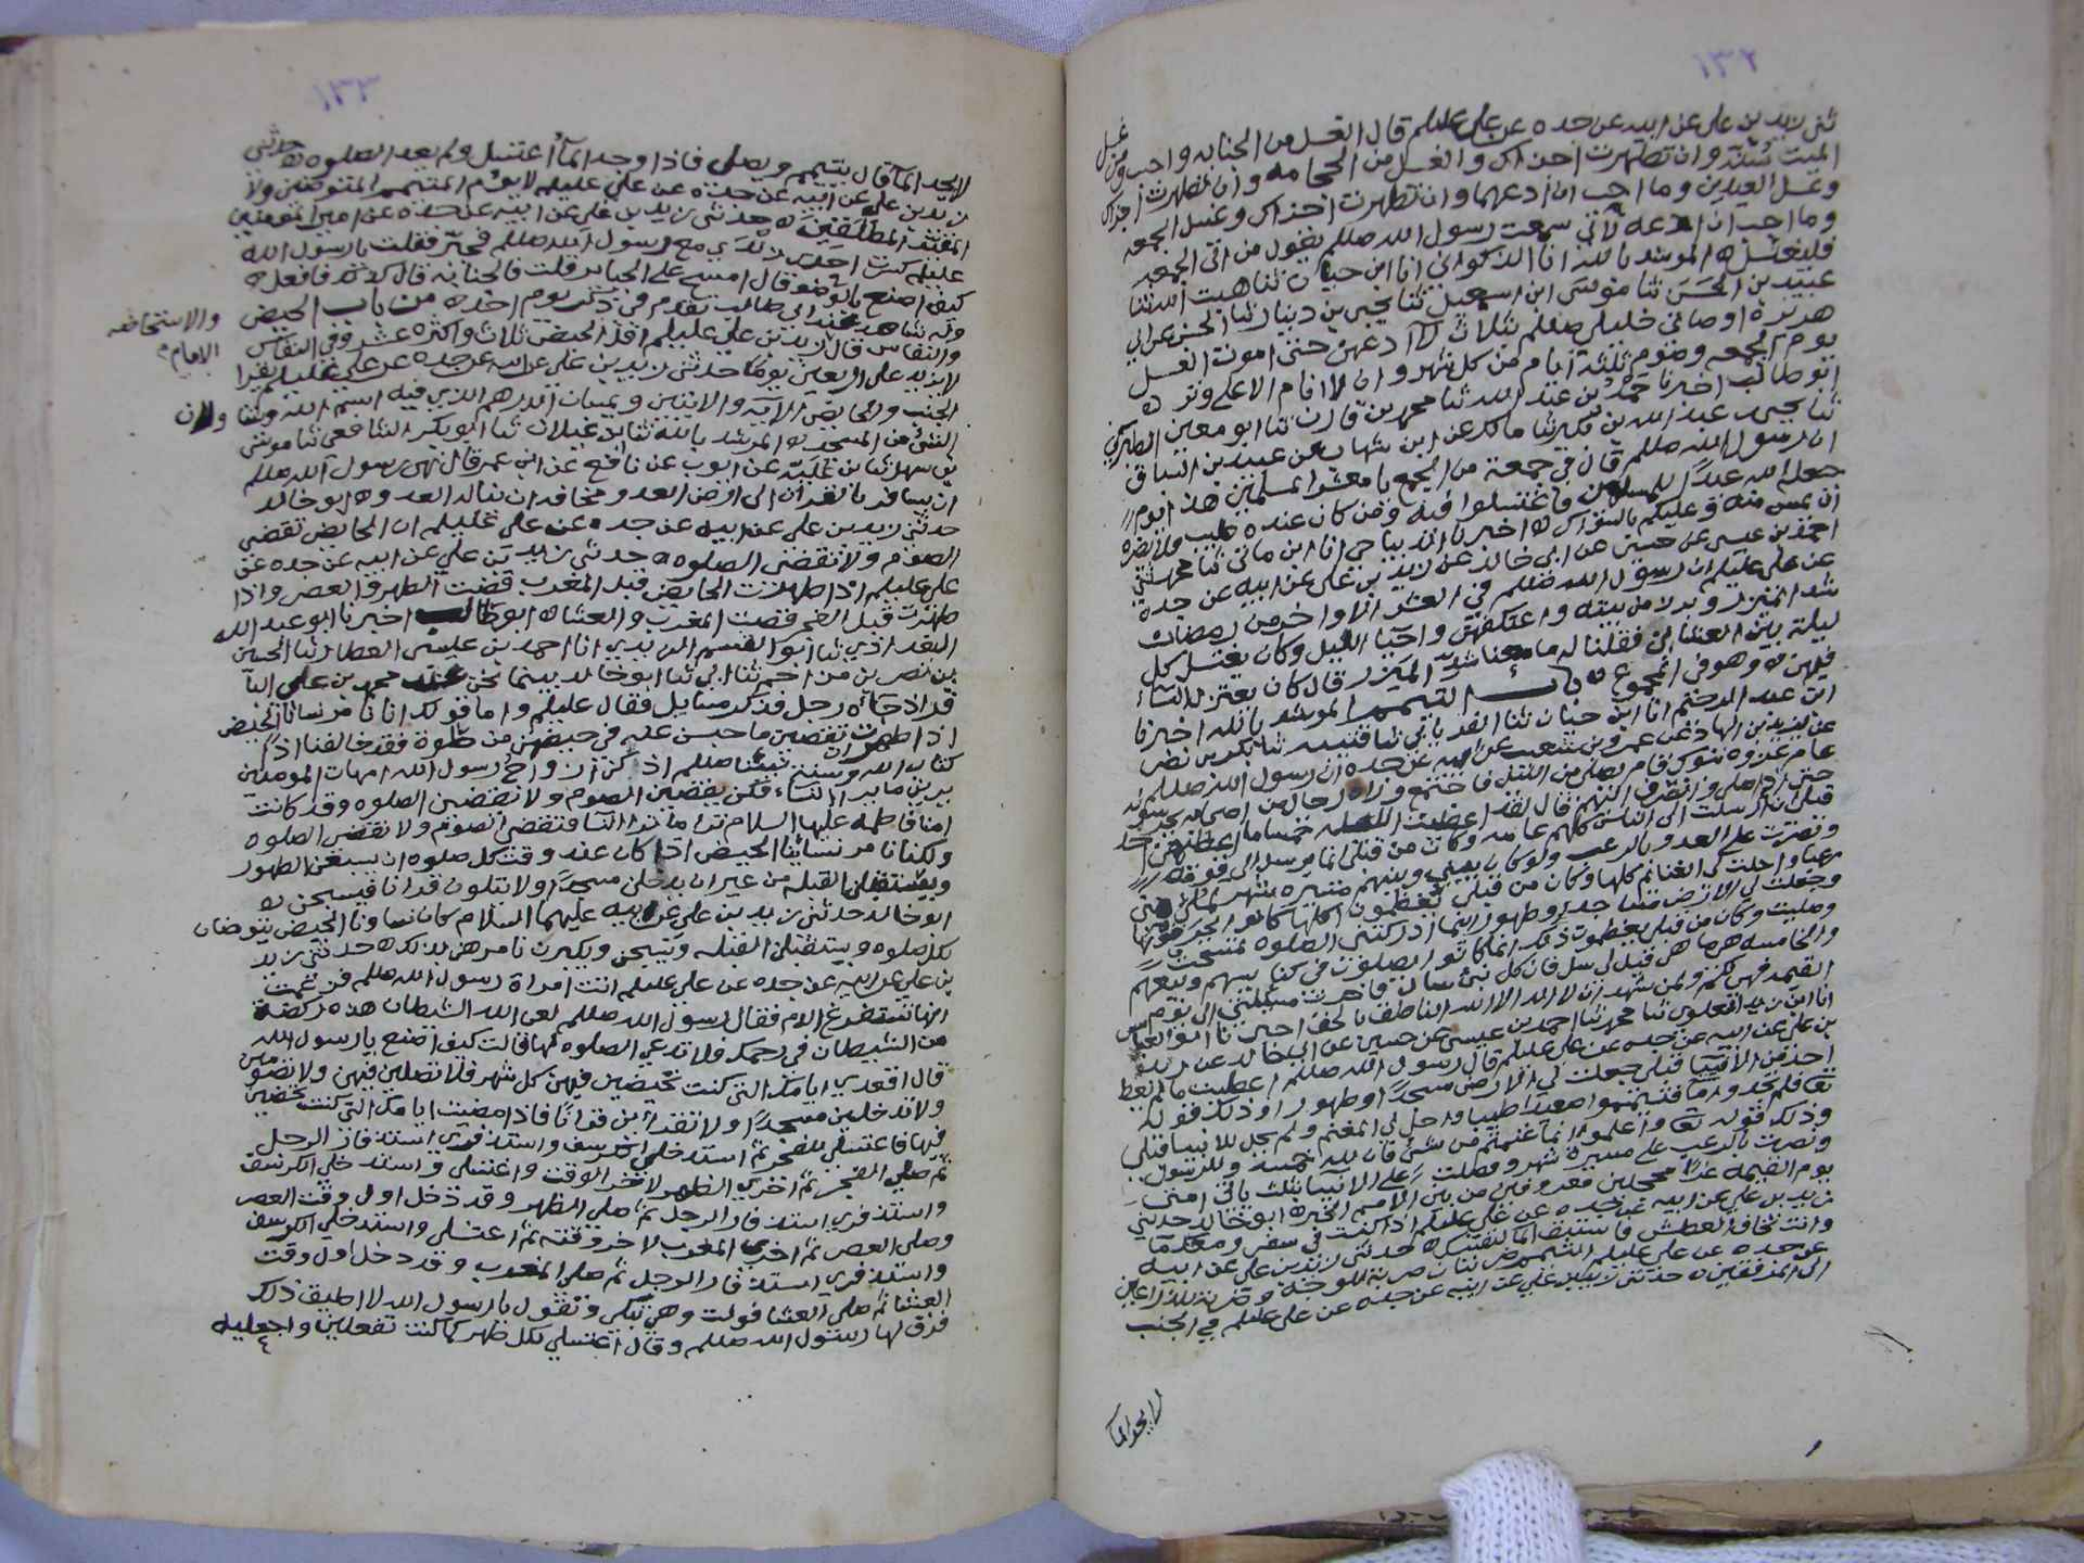 ١٣٢
ثنى زيد بن علي عن ابيه عن جده عن علي عليلم قال الغسل من الجنابه واجب ومن غسل
الميت سنة وان تطهرت اجزاك والغسل من الحجامه وان تطهرت اجزاك
وغسل العيدين وما احب ان ادعهما وان تطهرت اجزاك وغسل الجمعه
وما احب ان ادعه لأني سمعت رسول الله صللم يقول من اتى الجمعه
فليغتسل ه المرشد بالله انا الذكواني انا ابن حيان ثنا هبت الله ثنا
عبيد بن الحسن ثنا موسى ابن اسمعيل ثنا يحيى بن دينار ثنا الحسن عن ابي
هريرة اوصاني خليلي صللم بثلاث لا ادعهن حتى اموت الغسل
يوم الجمعه وصوم ثلثة ايام من كل شهر وان لا انام الا على وتر ه
ابو طالب اخبرنا حمد بن عبد الله ثنا محمد بن قارن ثنا ابو معين الطبري
ثنا يحيى عبد الله بن بكير ثنا مالك عن ابن شهاب عن عبيد بن السباق
ان رسول الله صللم قال في جمعة من الجمع يا معشر المسلمين هذا يوم
جعله الله عيداً للمسلمين فاغتسلوا فيه ومن كان عنده طيب فلا يضره
ان يمس منه وعليكم بالسواك ه اخبرنا الديباجي انا ابن ماتي ثنا محمد ثني
احمد بن عيسى عن حسين عن ابي خالد عن زيد بن علي عن ابيه عن جده
عن علي عليلم ان رسول الله صللم في العشر الاواخر من رمضان
شد الميزر وبرز من بيته واعتكفهن واحيا الليل وكان يغتسل كل
ليلة بين العشائين فقلنا له ما معنا شد الميزر قال كان يعتزل النساء
فيهن ه وهو في المجموع ه باب التيمم المرشد بالله اخبرنا
ابن عبد الرحيم انا ابن حيان ثنا الفريابي ثنا قتيبه ثنا بكر بن نصر
عن يزيد بن الهاد عن عمرو بن شعيب عن ابيه عن جده ان رسول الله صللم
عام غزوه تبوك قام يصلي من الليل فاجتمع وراه رجال من اصحابه
حتى اذا صلى وانصرف اليهم قال لقد اعطيت الليله خمساً ما اعطيهن احد
قبلي ارسلت الى الناس كلهم عامه وكان من قبلي انما يرسل الى قومه
ونصرت على العدو بالرعب ولو كان بيني وبينهم مسيره شهر لملئ مني
رعباً واحلت لي الغنائم كلها وكان من قبلي يعظمون اكلها كانوا يحرقونها
وجعلت لي الارض مسجد وطهور اينما ادركتني الصلوه تمسحت
وصليت وكان من قبلي يعظمون ذلك انما كانوا يصلون في كنايسهم وبيعهم
والخامسه هي ما هي قيل لي سل فان كل نبي سال فاخرت مسئلتي الى يوم
القيمه فهي لكم ولمن شهد ان لا اله الا الله الناطق بالحق اخبرنا ابو العباس
انا ابن زيد العلوي ثنا محمد ثنا احمد بن عيسى عن حسين عن ابي خالد عن زيد
بن علي عن ابيه عن جده عن علي عليلم قال رسول الله صللم اعطيت ما لم يعط
احد من الانبيا قبلي جعلت لي الارض مسجداً وطهورا وذلك قوله
تعا فلم تجدوا مآ فتيمموا صعيدا طيبا واحل لي المغنم ولم يحل للانبيا قبلي
وذلك قوله تعا واعلموا انما غنمتم من شئ فان لله خمسه وللرسول
ونصرت بالرعب على مسيرة شهر وفضلت على الانبيا بثلث ياتي امتي
يوم القيمه غرا محجلين معروفين من بين الامم الخيره ابو خالد حدثني
زيد بن علي عن ابيه عن جده عن علي عليلم اذا كنت في سفر ومعك مآ
وانت تخاف العطش فاستبق المآ لنفسك ه حدثني زيد بن علي عن ابيه
عن جده عن علي عليلم التيمم ضربتان ضربة للوجه وضربة للذراعين
الى المرفقين ه حدثني زيد بن علي عن ابيه عن جده عن علي عليلم في الجنب
لا يجد المآ
١٣٣
لا يجد المآ قال يتيمم ويصلي فاذا وجد المآ اغتسل ولم يعد الصلوه ه حدثني
زيد بن علي عن ابيه عن جده عن علي عليلم لا يؤم المتيمم المتوضين ولا
المقيد المطلقين ه حدثني زيد بن علي عن ابيه عن جده عن امير المومنين
عليلم كسرت احدى زندي مع رسول الله صللم فجبر فقلت يا رسول الله
كيف اصنع بالوضو قال امسح على الجباير قلت فالجنابه قال كذلك فافعل ه
وله شاهد عند ابي طالب تقدم في ذكر يوم احد ه من باب الحيض
والاستحاضه
والنفاس قال زيد بن علي عليلم اقل الحيض ثلاث واكثره عشر وفي النفاس
الامام
لا يزيد على اربعين يوما حدثني زيد بن علي عن ابيه عن جده عن علي عليلم يقرا
الجنب والحايض الاية والايتين ويمسان الدرهم الذي فيه اسم الله ويتنا ولان
الشئ من المسجد ه المرشد بالله ثنا ابن غيلان ثنا ابو بكر الشافعي ثنا موسى
بن سهل ثنا بن علية عن ايوب عن نافع عن ابن عمر قال نهى رسول الله صللم
ان يسافر بالقران الى ارض العدو مخافه ان يناله العدو ه ابو خالد
حدثني زيد بن علي عن ابيه عن جده عن علي عليلم ان الحايض تقضي
الصوم ولا تقضي الصلوه ه حدثني زيد بن علي عن ابيه عن جده عن
علي عليلم اذا طهرت الحايض قبل المغرب قضت الظهر والعصر واذا
طهرت قبل الفجر قضت المغرب والعشا ه ابو طالب اخبرنا ابو عبد الله
البغدادي ثنا ابو القسم الزيدي انا احمد بن عيسى العطار ثنا الحسين
بن نصر بن مزاحم ثنا ابي ثنا ابو خالد بينما نحن عند محمد بن علي البا
قر اذ جآه رجل فذكر مسايل فقال عليلم واما قولك انا نامر نسانا الحيض
اذا طهرن تقضين ما حبسن عليه في حيضهن من صلوة فقد خالفنا اذا
كتاب الله وسنة نبينا صللم اذ كن ازواج رسول الله امهات المومنين
يرين ما يرا النساء فكن يقضين الصوم ولا تقضين الصلوه وقد كانت
امنا فاطمه عليها السلام ترا ما ترا النسا فتقضي الصوم ولا تقضي الصلوه
ولكنا نامر نسائنا الحيض اذا كان عند وقت كل صلوه ان يسبغن الطهور
ويستقبلن القبله من غير ان يدخلن مسجداً ولا يتلون قرانا فيسبحن ه
ابو خالد حدثني زيد بن علي عن ابيه عليهما السلام كان نساونا الحيض يتوضان
لكل صلوه ويستقبلن القبله ويسبحن ويكبرن نامرهن بذلك ه حدثني زيد
بن علي عن ابيه عن جده عن علي عليلم اتت امراة رسول الله صللم فزعمت
انها تستفرغ الدم فقال رسول الله صللم لعن الله الشيطان هذه ركضة
من الشيطان في رحمك فلا تدعي الصلوه لها قالت كيف اصنع يا رسول الله
قال اقعدي ايامك التي كنت تحيضين فيهن كل شهر فلا تصلين فيهن ولا تصومين
ولا تدخلين مسجداً ولا تقرأين قراناً فاذا مضيت ايامك التي كنت تحيضين
فيها فاغتسلي للفجر ثم استدخلي الكرسف واستذفري استذفار الرجل
ثم صلي الفجر ثم اخري الظهر لاخر الوقت واغتسلي واستدخلي الكرسف
واستذفري استذفار الرجل ثم صلي الظهر وقد دخل اول وقت العصر
وصلي العصر ثم اخري المغرب لاخر وقته ثم اغتسلي واستدخلي الكرسف
واستذفري استذفار الرجل ثم صلي المغرب وقد دخل اول وقت
العشا ثم صلي العشا فولت وهي تبكي وتقول يا رسول الله لا اطيق ذلك
فرق لها رسول الله صللم وقال اغتسلي لكل طهر كما كنت تفعلين واجعليه